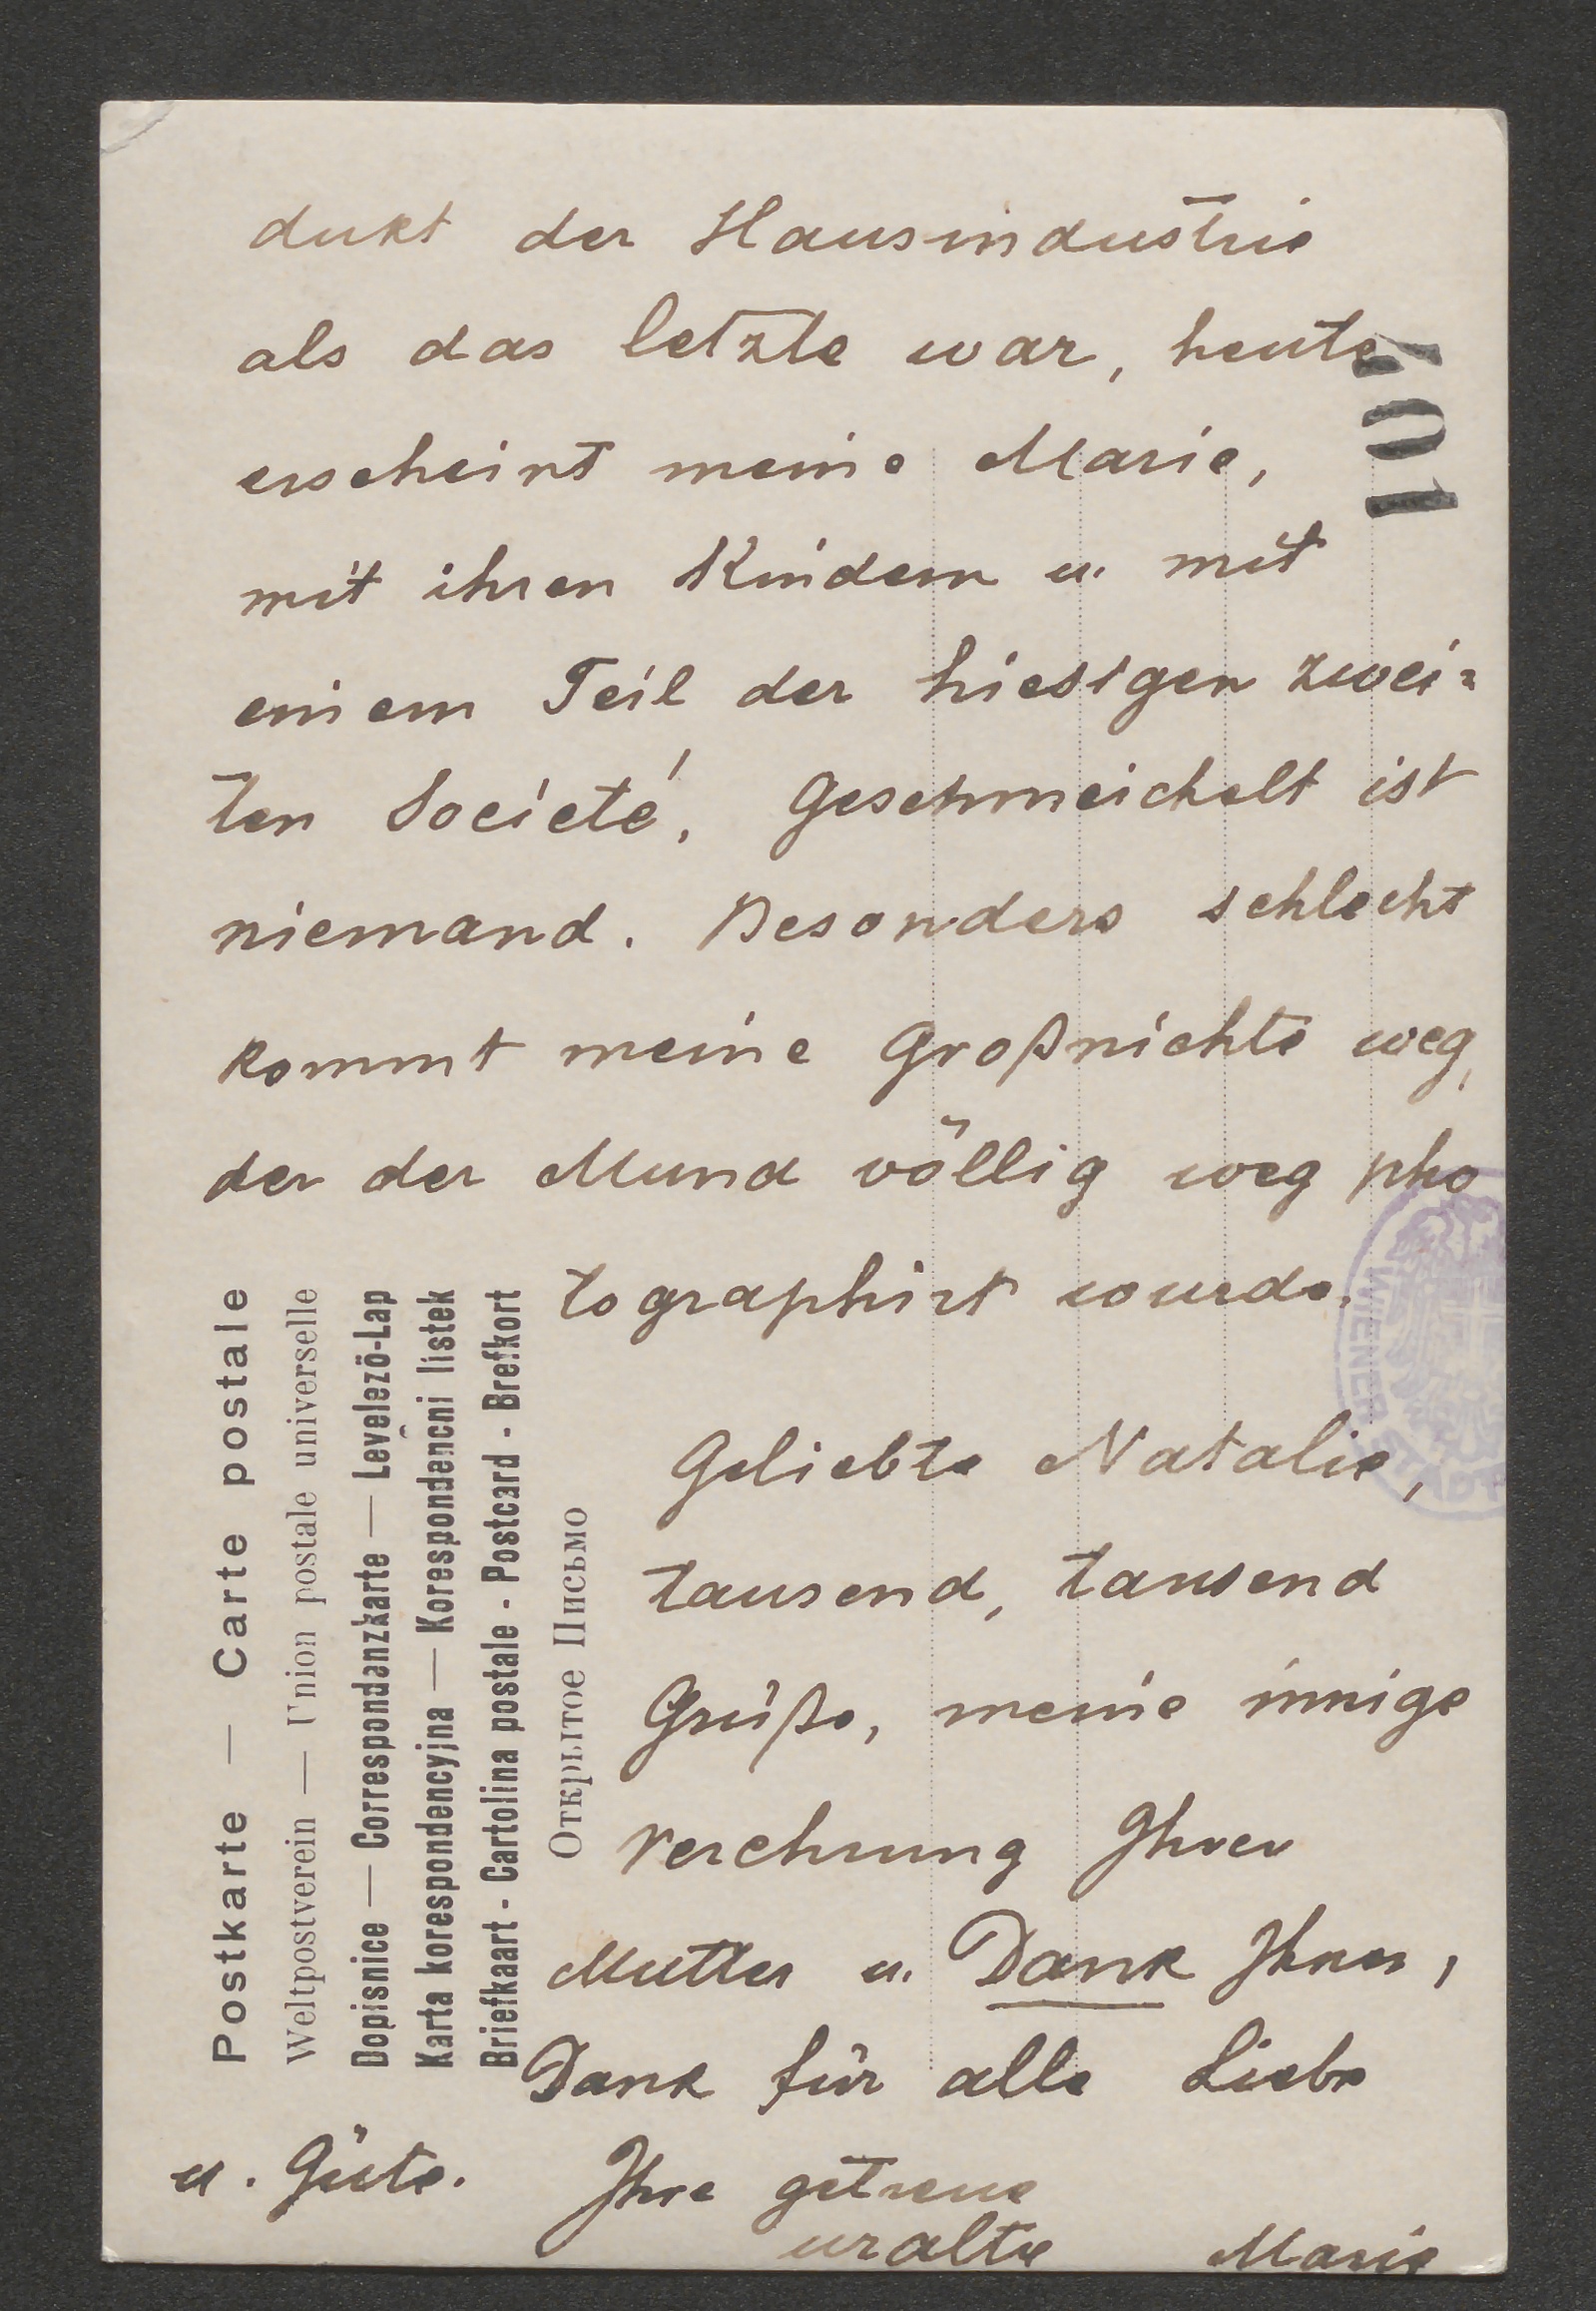 dukt der Hausindustrie
als das letzte war, heute
erscheint meine Marie,
mit ihren Kindern u. mit
einem Teil der hiesigen zwei=
ten Societé. Geschmeichelt ist
niemand. Besonders schlecht
kommt meine Großnichte weg,
der der Mund völlig weg pho
tographirt wurde.
Geliebte Natalie,
tausend, tausend
Grüße, meine innige
Verehrung Ihrer
Mutter u. Dank Ihnen,
Dank für alle Liebe
u. Güte. Ihre getreue
uralte Marie
101
Postkarte — Carte postale
Weltpostverein — Union postale universelle
Dopisnice — Correspondanzkarte — Levelezö-Lap
Karta korespondencyjna — Korespondencni listek
Briefkaart - Cartolina postale - Postcard - Brefkort
Открытое Письмо
WIENER